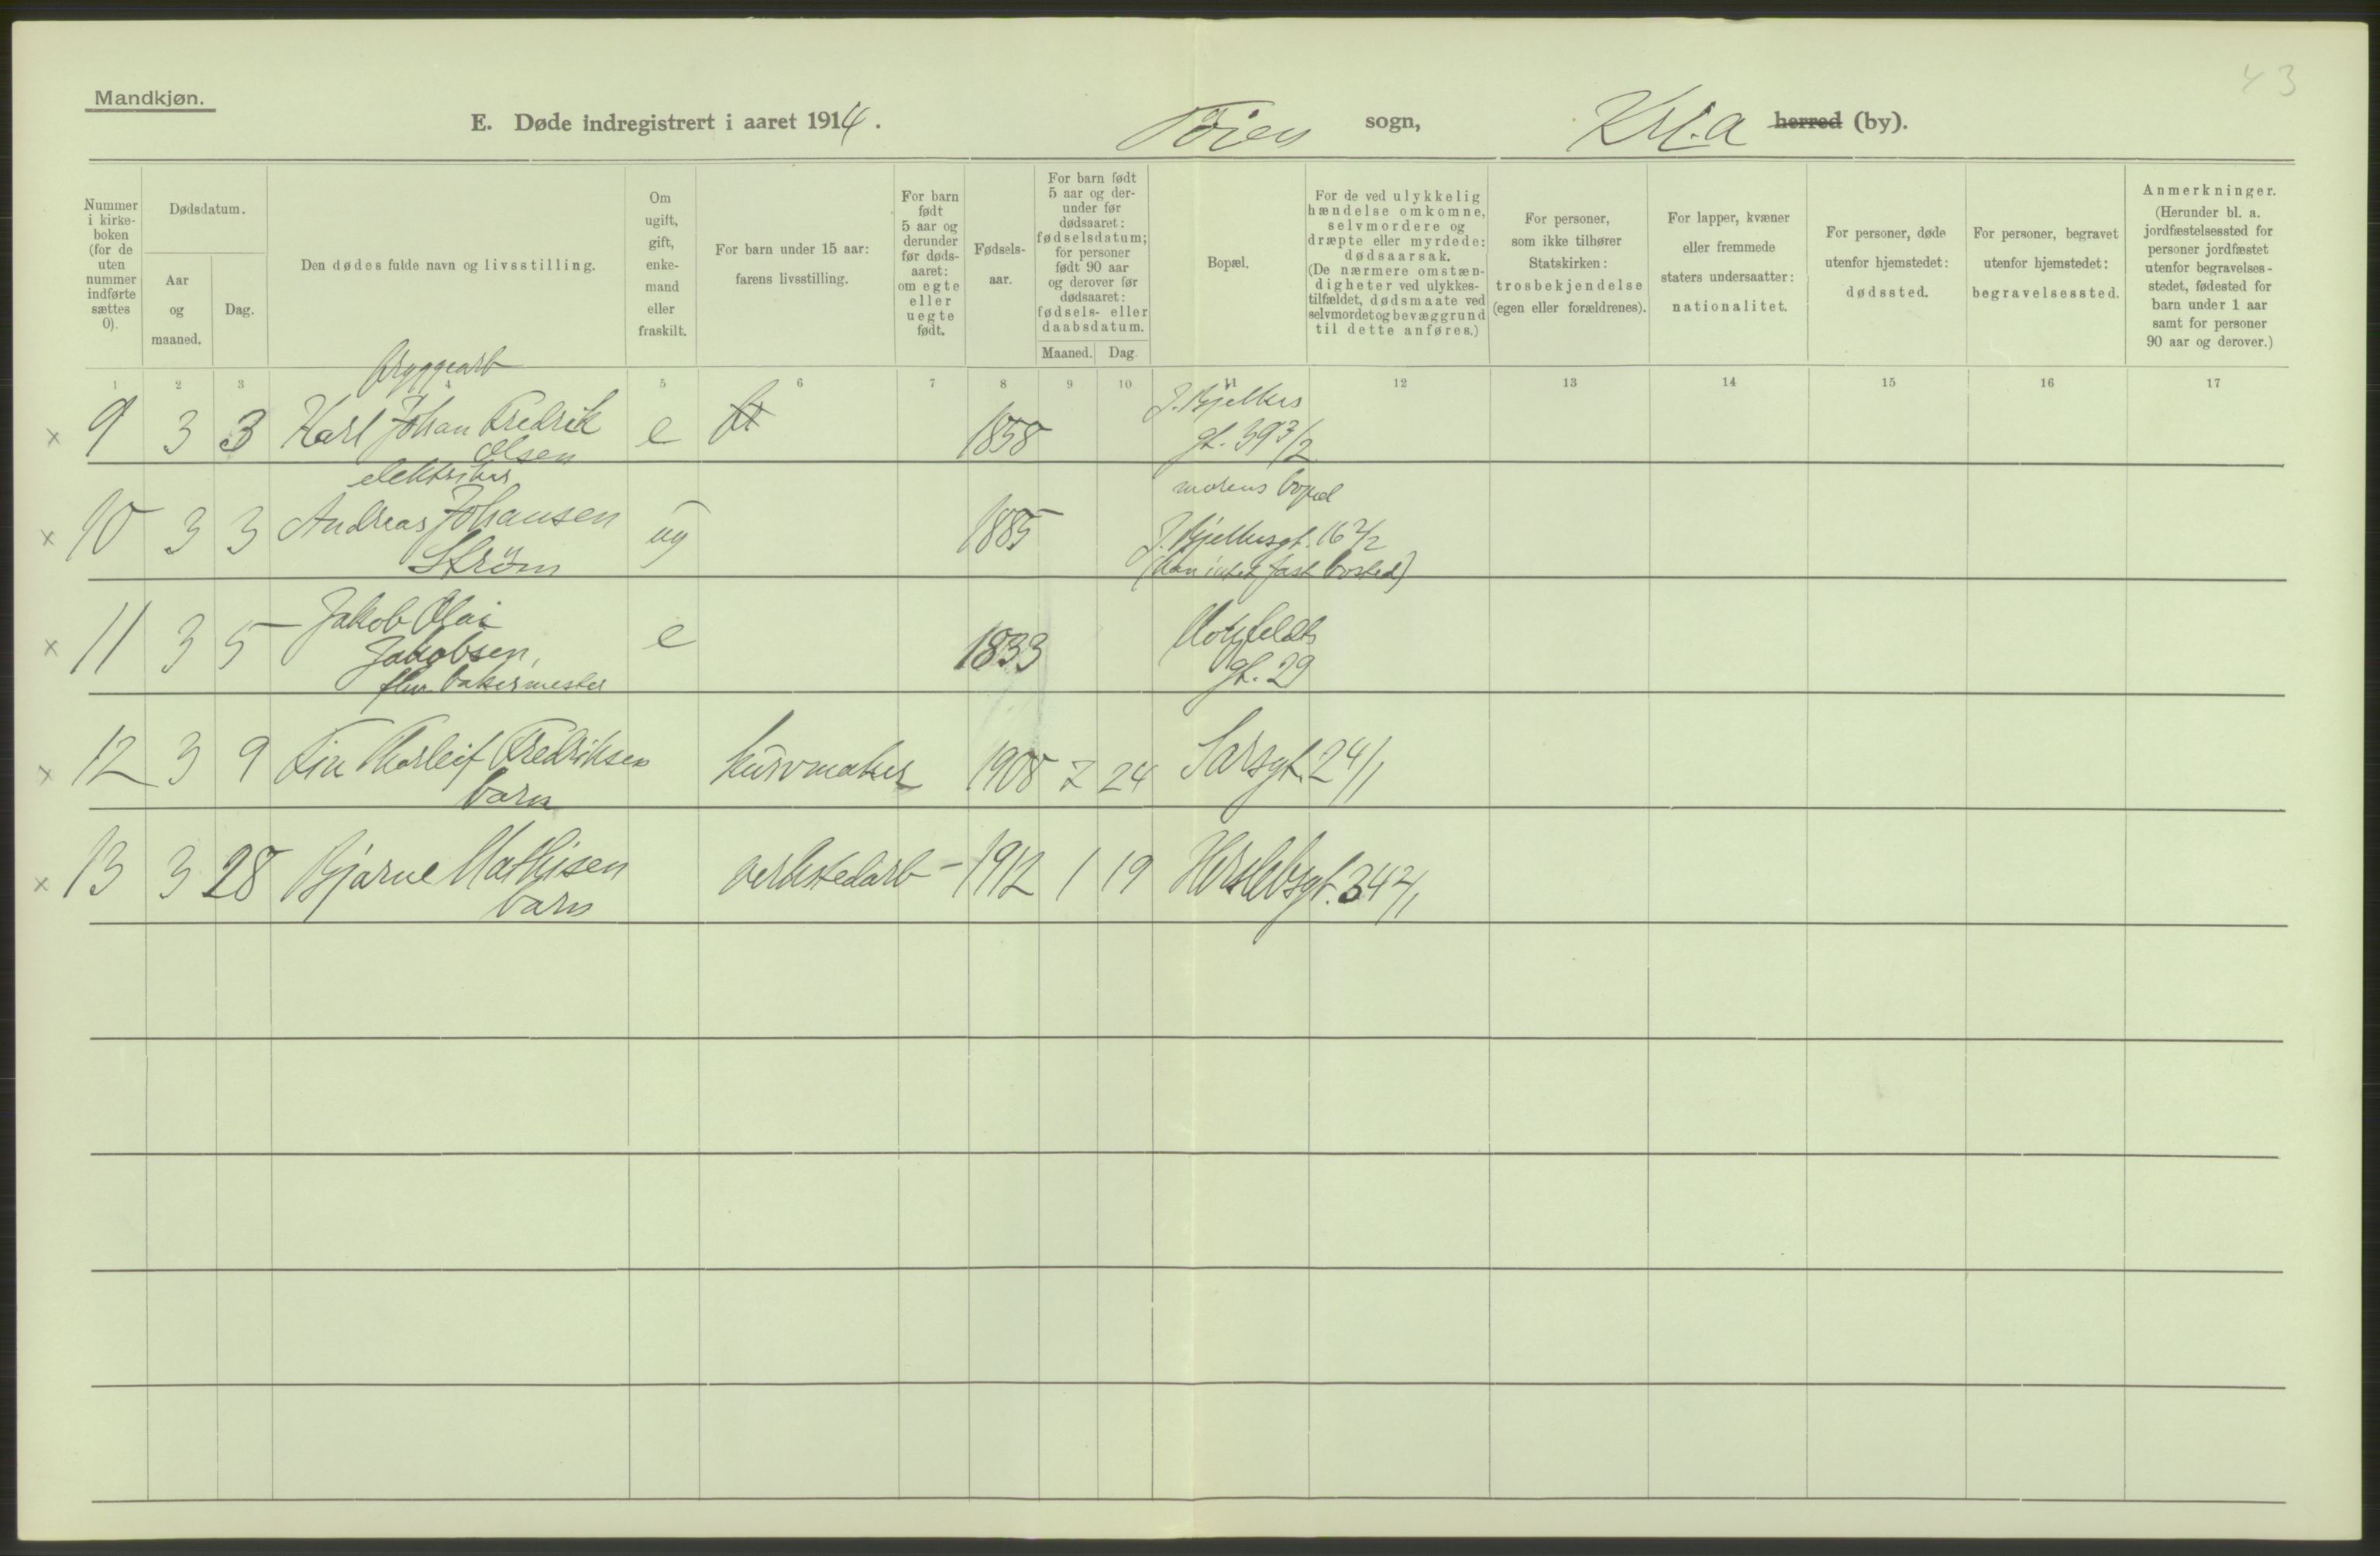 43
Mandkjøn.
E. Døde indregistrert i aaret 1914. Tøien sogn, Kr.a herred (by).
Nummer i kirke-boken (for de uten nummer indførte sættes 0).
Dødsdatum.
Aar og maaned.
Dag.
Den dødes fulde navn og livsstilling.
Om ugift, gift, enke-mand eller fraskilt.
For barn under 15 aar: farens livsstilling.
For barn født 5 aar og derunder før døds-aaret: om egte eller uegte født.
Fødsels-aar.
For barn født 5 aar og der-under før dødsaaret: fødselsdatum; for personer født 90 aar og derover før dødsaaret: fødsels- eller daabsdatum.
Maaned. Dag.
Bopæl.
For de ved ulykkelig hændelse omkomne, selvmordere og dræpte eller myrdede: dødsaarsak. (De nærmere omstæn-digheter ved ulykkes-tilfældet, dødsmaate ved selvmordet og bevæggrund til dette anføres.)
For personer, som ikke tilhører Statskirken: trosbekjendelse (egen eller forældrenes).
For lapper, kvæner eller fremmede staters undersaatter: nationalitet.
For personer, døde utenfor hjemstedet: dødssted.
For personer, begravet utenfor hjemstedet: begravelsessted.
Anmerkninger. (Herunder bl. a. jordfæstelsessted for personer jordfæstet utenfor begravelses-stedet, fødested for barn under 1 aar samt for personer 90 aar og derover.)
1 2 3 4 5 6 7 8 9 10 11 12 13 14 15 16 17
Bryggearb
x 9 3 3 Karl Johan Fredrik Olsen e 1858 J. Bjelkes gt. 39 3/2
elektriker
x 10 3 3 Andreas Johansen Strøm ug 1885 morens bopæl J. Bjelkesgt. 16 2/2 (han intet fast bosted)
x 11 3 5 Jakob Olai Jakobsen, fhv. bakermester e 1833 Motzfeldts gt. 29
x 12 3 9 Fin Thorleif Fredriksen barn kurvmaker 1908 7 24 Sarsgt. 24/1
x 13 3 28 Bjarne Mathisen barn verkstedarb - 1912 1 19 Herslebsgt. 34 2/1